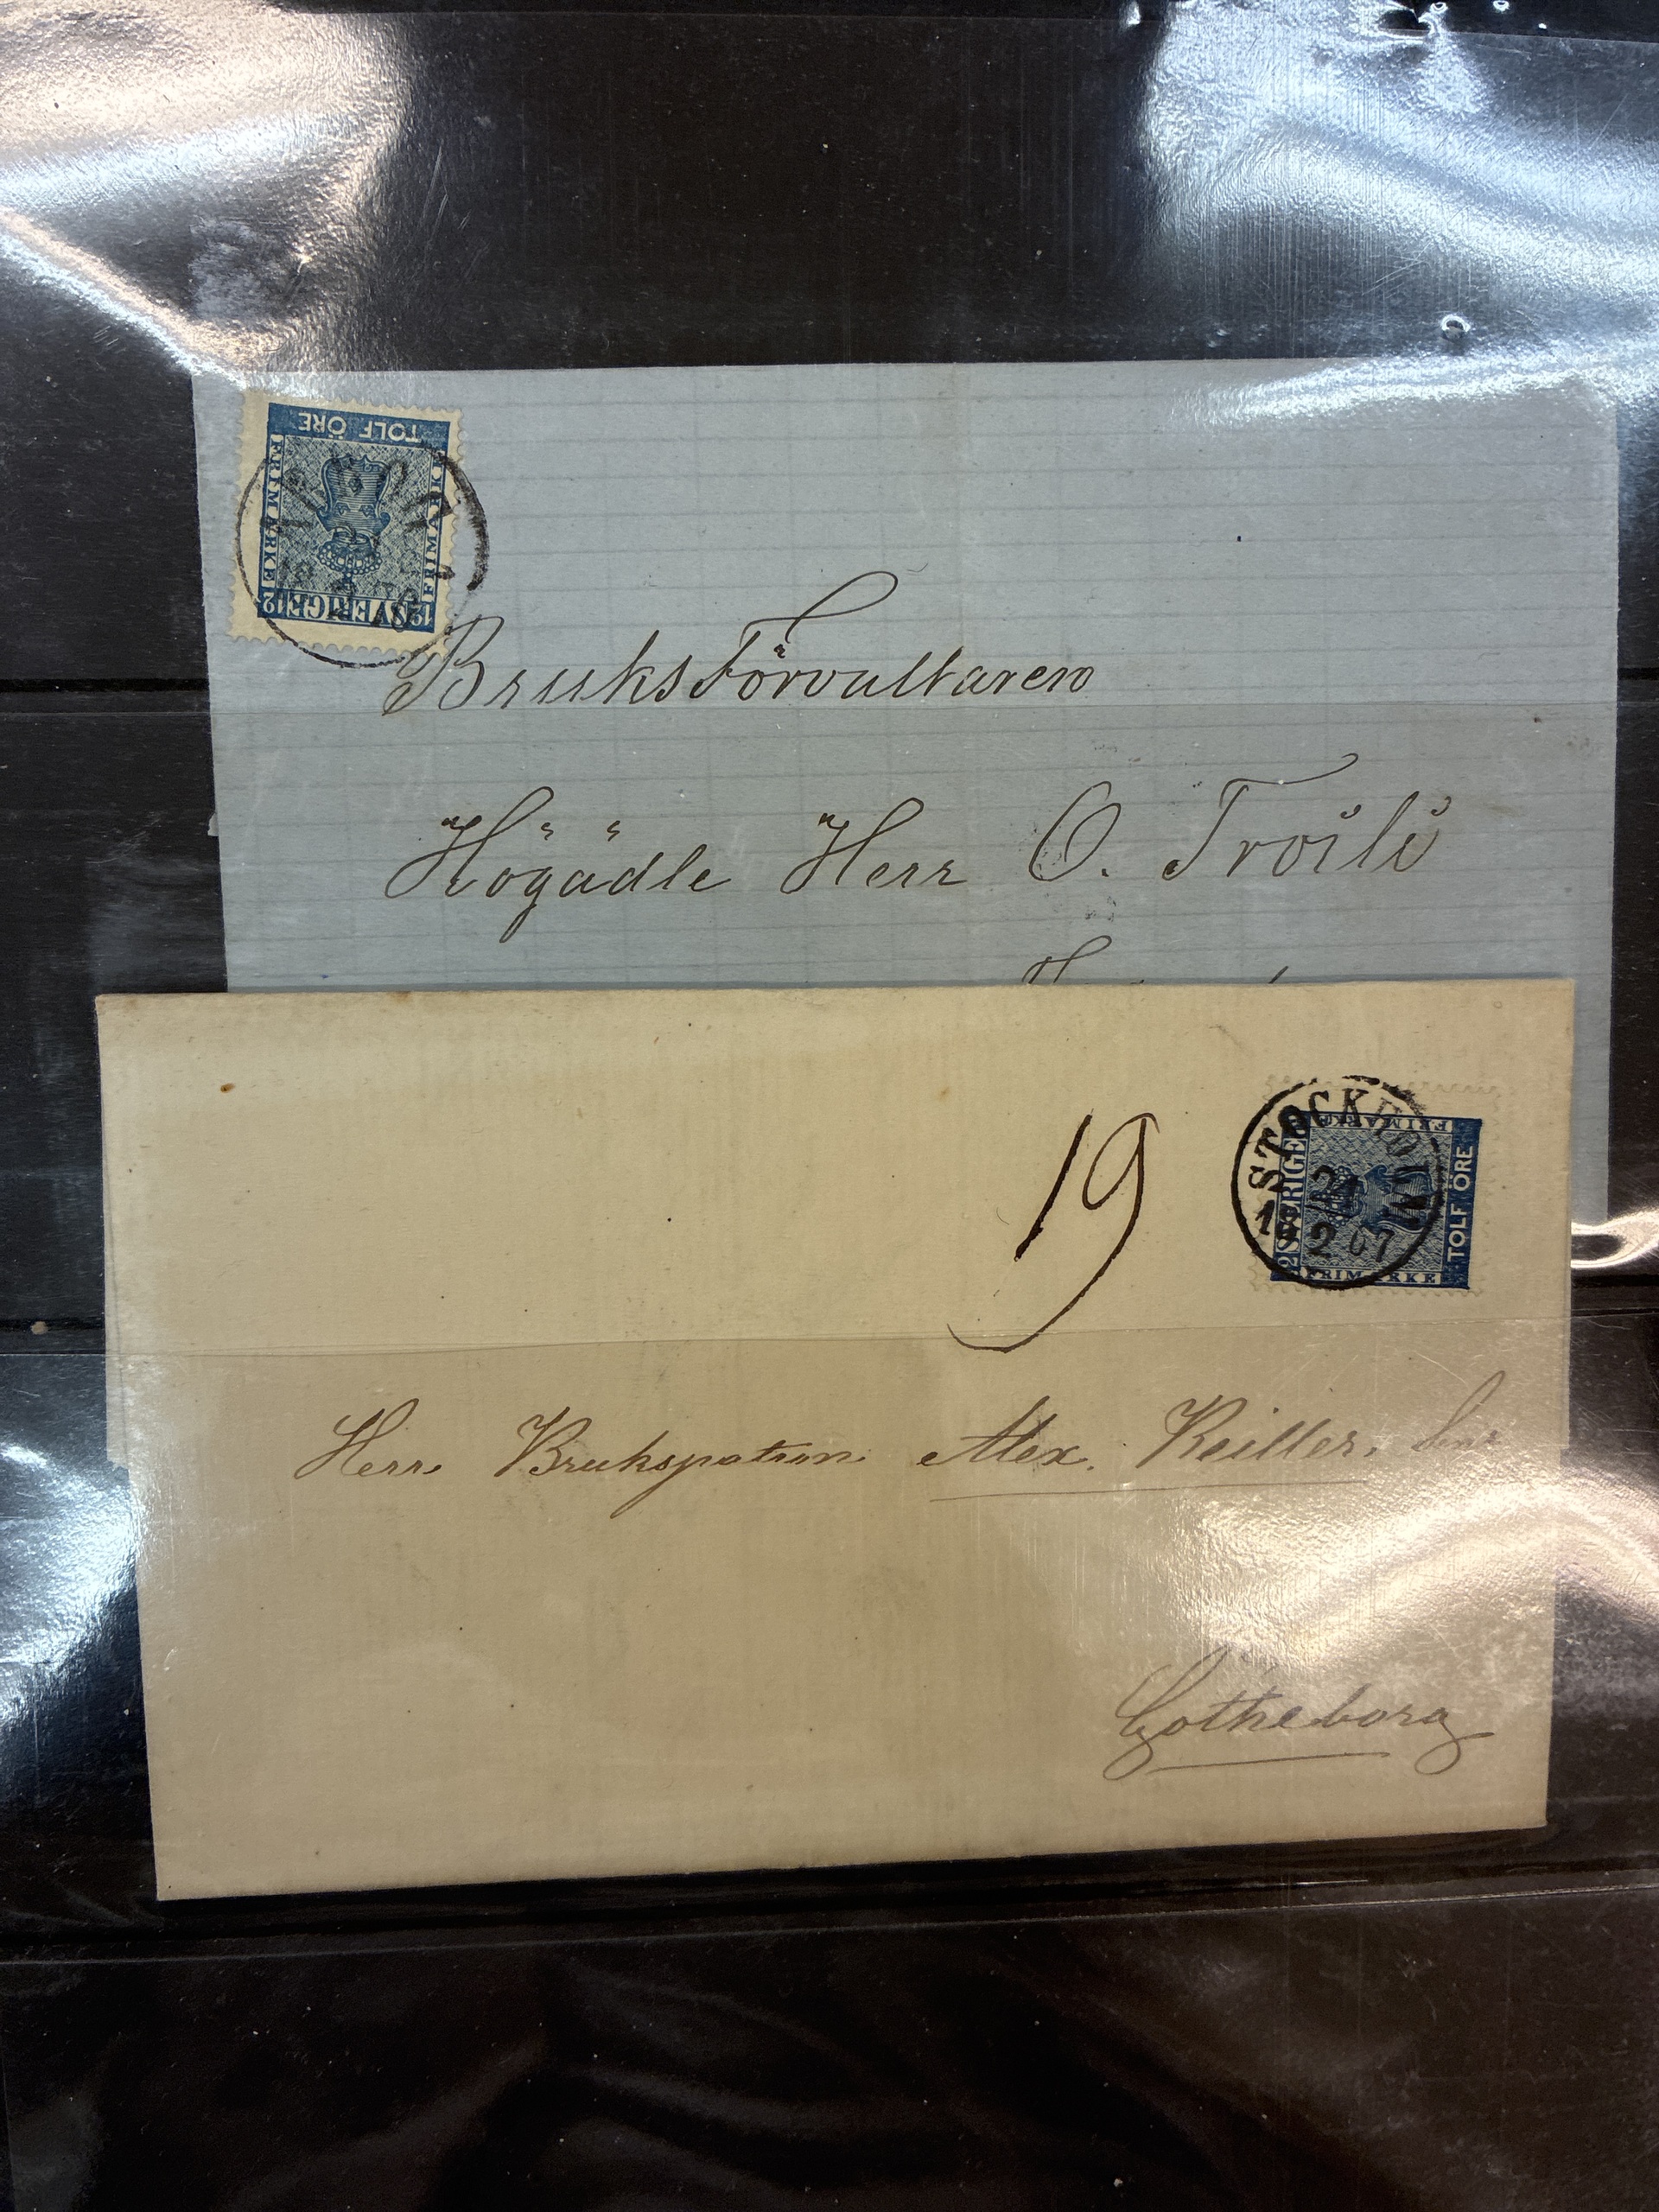 TOLF ÖRE
FRIMÄRKE
FRIMÄRKE
12 SVERIGE 12
BruksFörvaltaren
Högädle Herr O. Troili
19
STOCKHOLM
24
2 67
FRIMÄRKE
SVERIGE
TOLF ÖRE
FRIMÄRKE
Herr Brukspatron Alex. Keiller. Senr
Götheborg